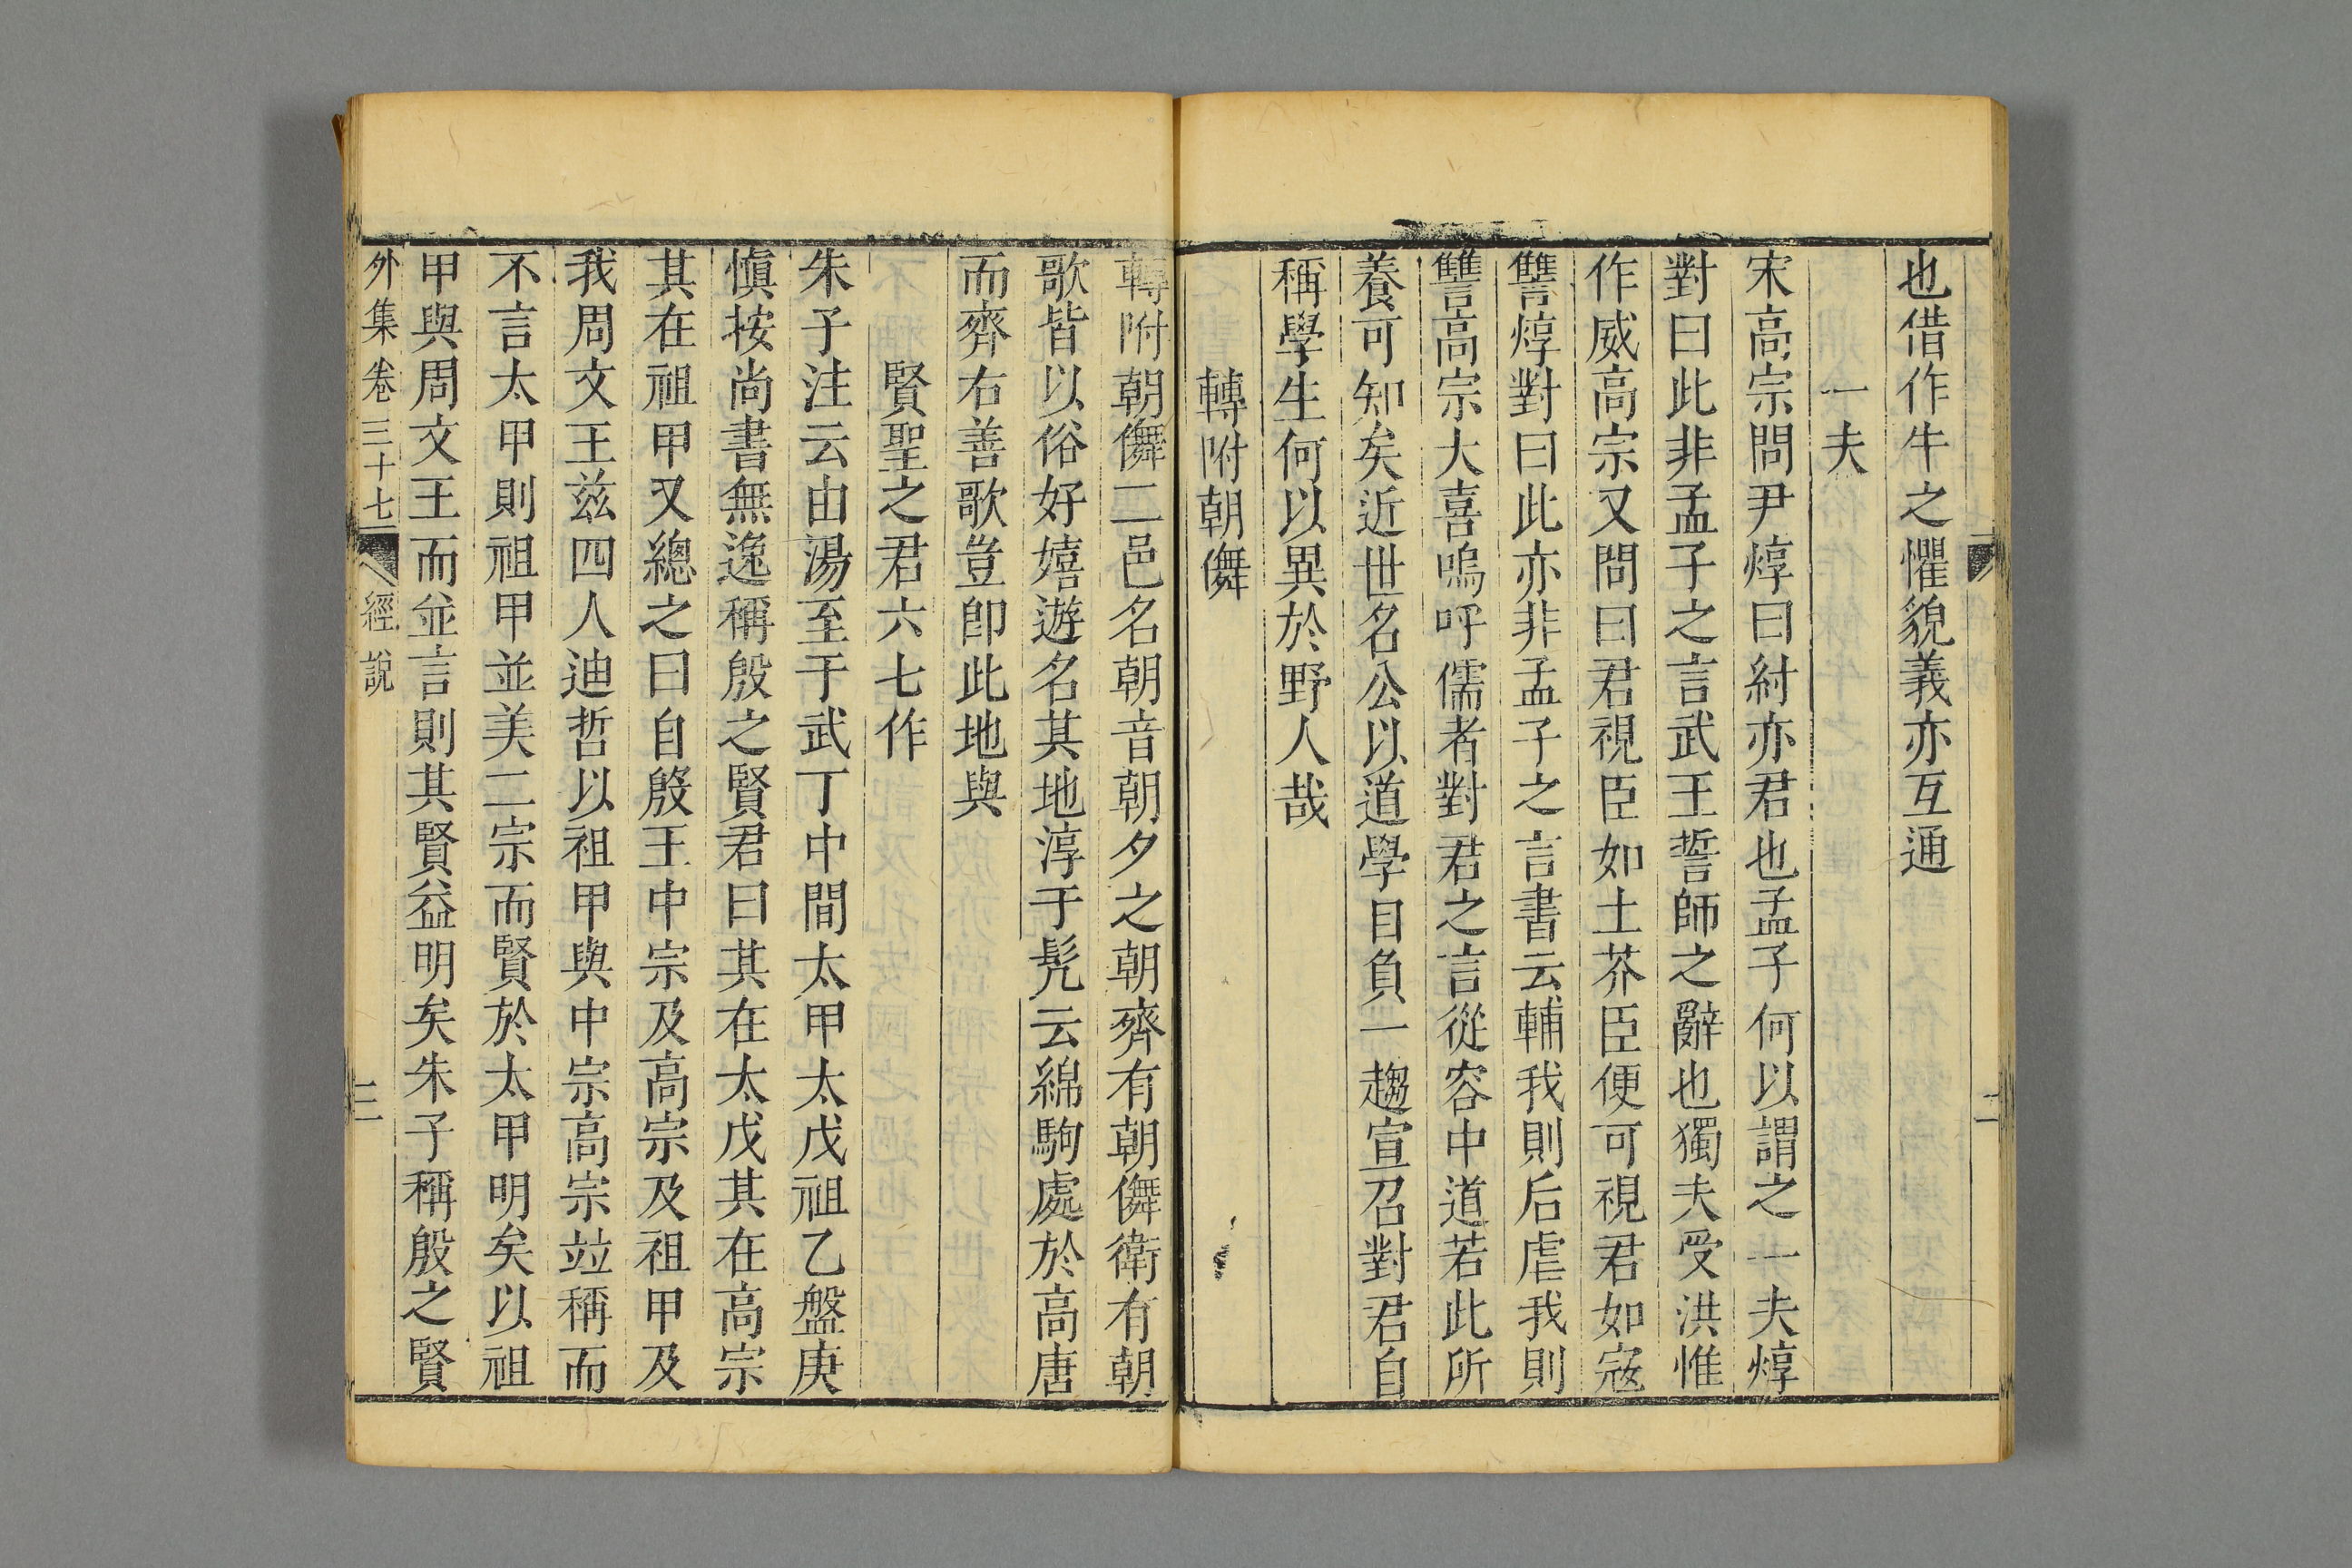 也借作牛之懼貌義亦互通
一夫
宋高宗問尹焞曰紂亦君也孟子何以謂之一夫焞
對曰此非孟子之言武王誓師之辭也獨夫受洪惟
作威高宗又問曰君視臣如土芥臣便可視君如寇
讐焞對曰此亦非孟子之言書云輔我則后虐我則
讐高宗大喜嗚呼儒者對君之言從容中道若此所
養可知矣近世名公以道學目負一趨宣召對君自
稱學生何以異於野人哉
轉附朝儛
二
轉附朝儛二邑名朝音朝夕之朝齊有朝儛衛有朝
歌皆以俗好嬉遊名其地淳于髠云綿駒處於高唐
而齊右善歌豈卽此地與
賢聖之君六七作
朱子注云由湯至于武丁中間太甲太戊祖乙盤庚
愼按尚書無逸稱殷之賢君曰其在太戊其在高宗
其在祖甲又總之曰自殷王中宗及高宗及祖甲及
我周文王兹四人迪哲以祖甲與中宗高宗竝稱而
不言太甲則祖甲並美二宗而賢於太甲明矣以祖
甲與周文王而並言則其賢益明矣朱子稱殷之賢
外集卷三十七 經說 三